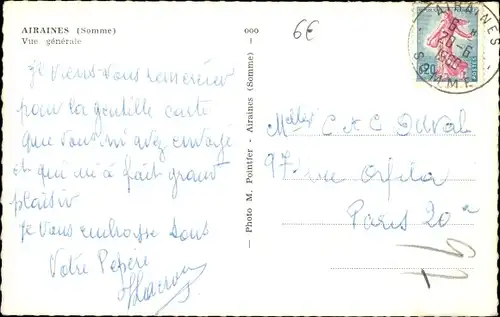 AIRAINES (Somme)
Vue générale
000
6€
Je viens vous remercier
pour la gentille carte
que vous m'avez envoyé
et qui m'a fait grand
plaisir
Je vous embrasse tous
Votre Pépère
— Photo M. Pointier - Airaines (Somme) —
C & C Duval
97 rue Orfila
Paris 20e
AIRAINES
6 *
28-6
1960
SOMME
0,20
POSTES